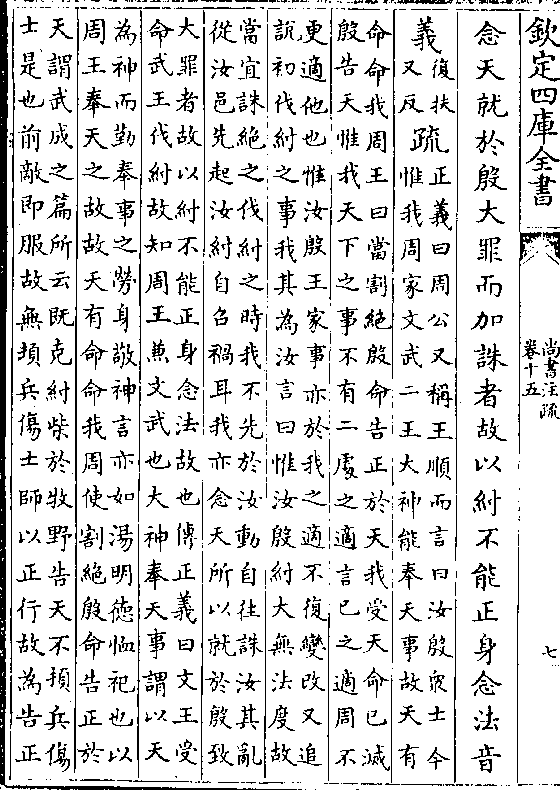 欽定四庫全書
尚書注疏
卷十五
七
念天就於殷大罪而加誅者故以紂不能正身念法音
義復扶
又反疏正義曰周公又稱王順而言曰汝殷衆士今
惟我周家文武二王大神能奉天事故天有
命命我周王曰當割絶殷命告正於天我受天命已滅
殷告天惟我天下之事不有二處之適言已之適周不
更適他也惟汝殷王家事亦於我之適不復變改又追
說初伐紂之事我其為汝言曰惟汝殷紂大無法度故
當宜誅絶之伐紂之時我不先於汝動自往誅汝其亂
從汝邑先起汝紂自召禍耳我亦念天所以就於殷致
大罪者故以紂不能正身念法故也傳正義曰文王受
命武王伐紂故知周王兼文武也大神奉天事謂以天
為神而勤奉事之勞身敬神言亦如湯明德恤祀也以
周王奉天之故故天有命命我周使割絶殷命告正於
天謂武成之篇所云既克紂柴於牧野告天不頓兵傷
士是也前敵即服故無頓兵傷士師以正行故為告正